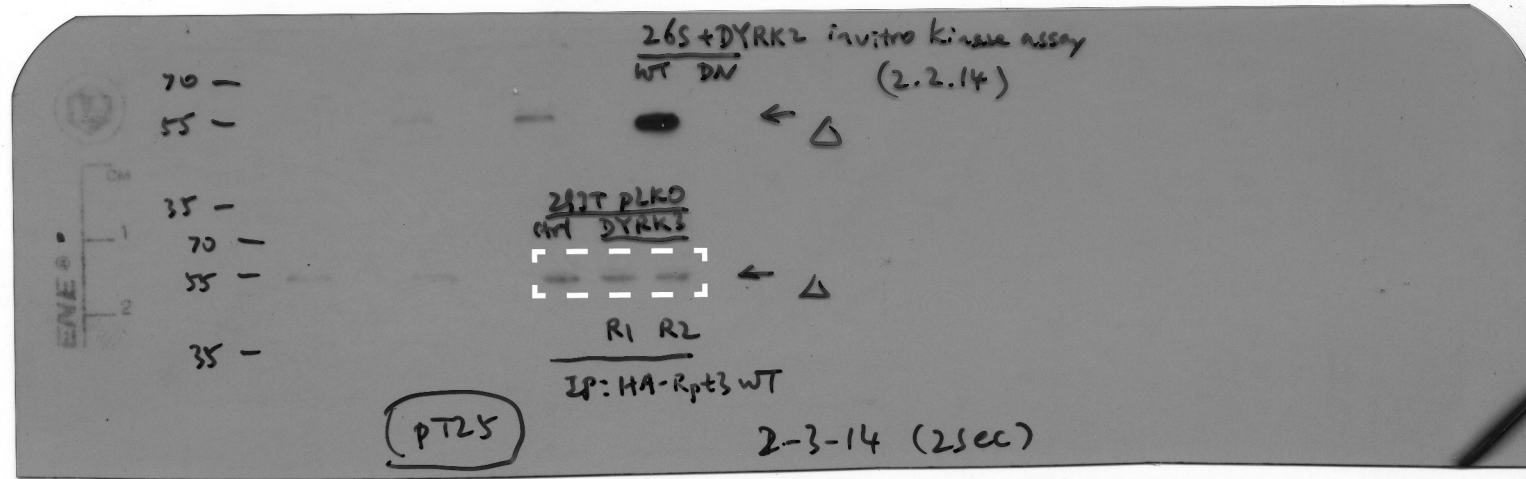 26S + DYRK2 invitro kinase assay
WT DN
(2.2.14)
70 -
55 -
← △
CM
35 -
293T pLKO
ctrl DYRK3
1
70 -
55 -
← △
2
R1 R2
35 -
IP: HA-Rpt3 WT
pT25
2-3-14 (2sec)